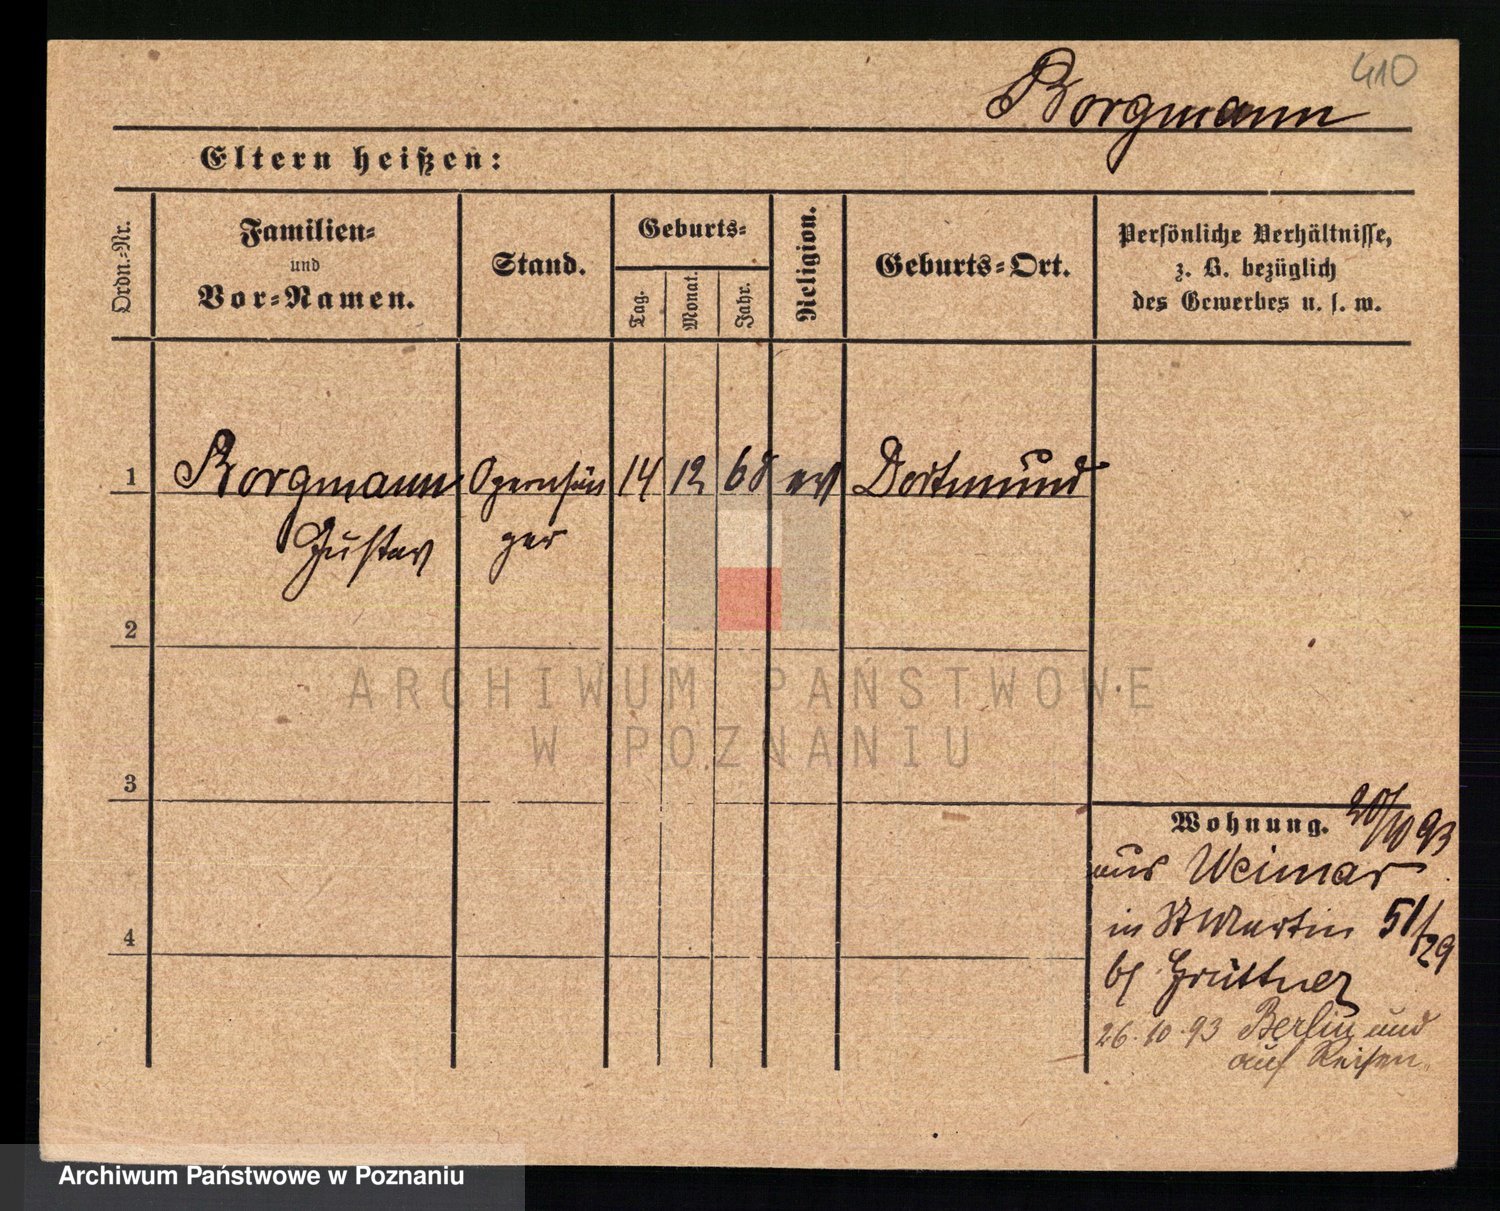 410
Borgmann
Eltern heißen:
Ordn.-Nr.
Familien-
und
Vor-Namen.
Stand.
Geburts-
Tag.
Monat.
Jahr.
Religion.
Geburts-Ort.
Persönliche Verhältnisse,
z. B. bezüglich
des Gewerbes u. s. w.
1 Borgmann Opernsän 14 12 68 ev Dortmund
Gustav ger
2
3
4
Wohnung. 20/10 93
aus Weimar
in St Martin 51/29
bei Grüttner
26.10.93 Berlin und
auf Reisen.
ARCHIWUM PAŃSTWOWE
W POZNANIU
Archiwum Państwowe w Poznaniu